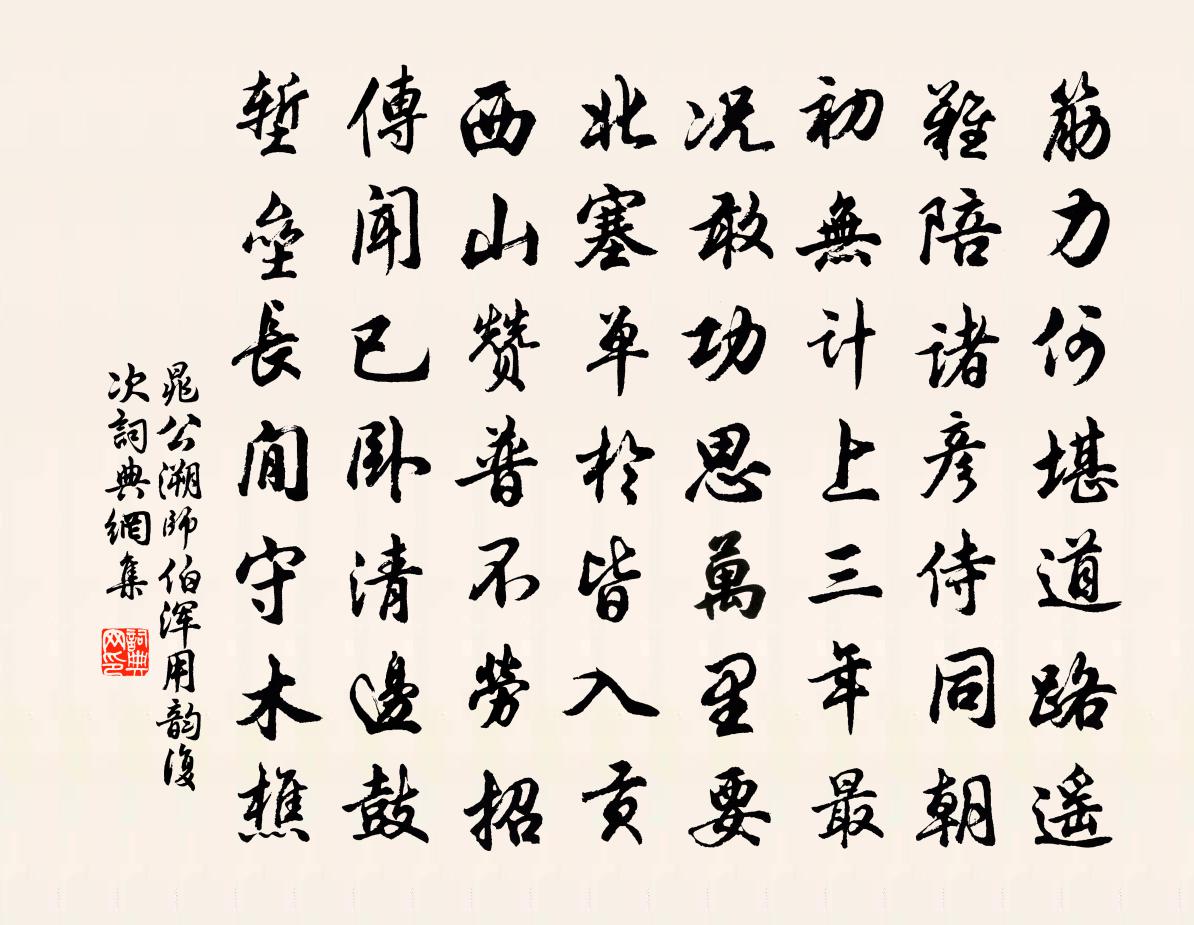 筋力何堪道路遥
難陪諸彦侍同朝
初無計上三年最
况敢功思萬里要
北塞单於皆入貢
西山赞普不勞招
傳聞已卧清邊鼓
塹壘長閒守木樵
晁公溯師伯渾用韵復
次詞典網集
詞典网印